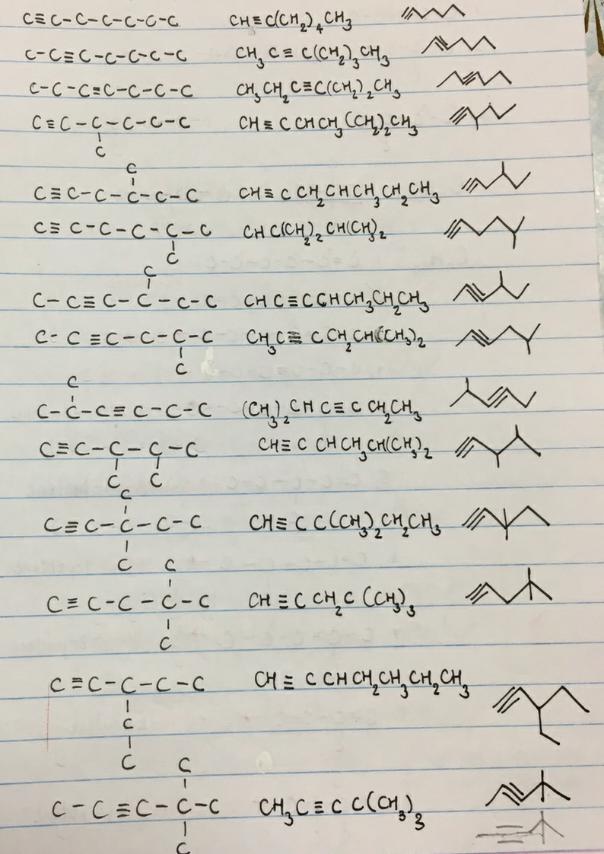 C≡C-C-C-C-C-C CH≡C(CH₂)₄CH₃
C-C≡C-C-C-C-C CH₃C≡C(CH₂)₃CH₃
C-C-C≡C-C-C-C CH₃CH₂C≡C(CH₂)₂CH₃
C≡C-C-C-C-C CH≡CCHCH₃(CH₂)₂CH₃
C
C
C≡C-C-C-C-C CH≡CCH₂CHCH₃CH₂CH₃
C≡C-C-C-C-C CHC(CH₂)₂CH(CH)₂
C
C
C-C≡C-C-C-C CHC≡CCHCH₃CH₂CH₃
C-C≡C-C-C-C CH₃C≡CCH₂CH(CH₃)₂
C
C
C-C-C≡C-C-C (CH₃)₂CHC≡CCH₂CH₃
C≡C-C-C-C CH≡CCHCH₃CH(CH₃)₂
C C
C
C≡C-C-C-C CH≡CC(CH₃)₂CH₂CH₃
C C
C≡C-C-C-C CH≡CCH₂C(CH₃)₃
C
C≡C-C-C-C CH≡CCHCH₂CH₃CH₂CH₃
C
C C
C-C≡C-C-C CH₃C≡CC(CH₃)₃
C